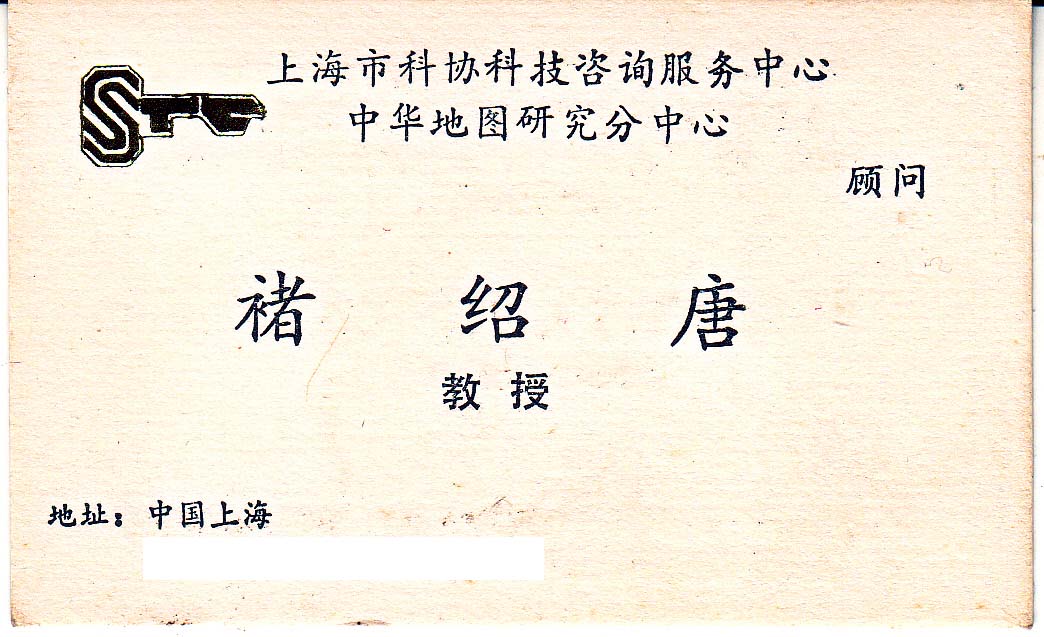 上海市科协科技咨询服务中心
STC
中华地图研究分中心
顾问
褚绍唐
教授
地址：中国上海